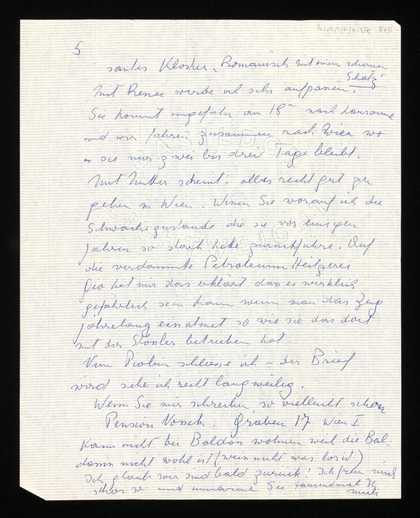 5
santes Kloster, Romanisch mit einem schönen
Schatz
Mit Renee werde ich sehr aufpassen.
Sie kommt ungefähr am 18ten nach Lausanne
und wir fahren zusammen nach Wien wo
sie nur zwei bis drei Tage bleibt.
Mit Mutter scheint alles recht gut zu
gehen in Wien. Wissen Sie worauf ich die
Schwächezustände die sie vor einigen
Jahren so stark hatte zurückführe: Auf
die verdammte Petroleum Heizerei
Gio hat mir das erklärt das es wirklich
gefährlich sein kann wenn man das Zeug
jahrelang einatmet so wie sie das dort
mit der Stooler betrieben hat.
Nun Piolin schliesse ich - der Brief
wird sehe ich recht langweilig.
Wenn Sie mir schreiben, so vielleicht schon
Pension Nossek. Graben 17 Wien I
Kann nicht bei Baldass wohnen weil die Bal-
damm nicht wohl ist (weiss nicht was los ist)
Ich glaub wir sind bald zurück! Ich freu mich
schon so und umarme Sie tausendmal Ihr